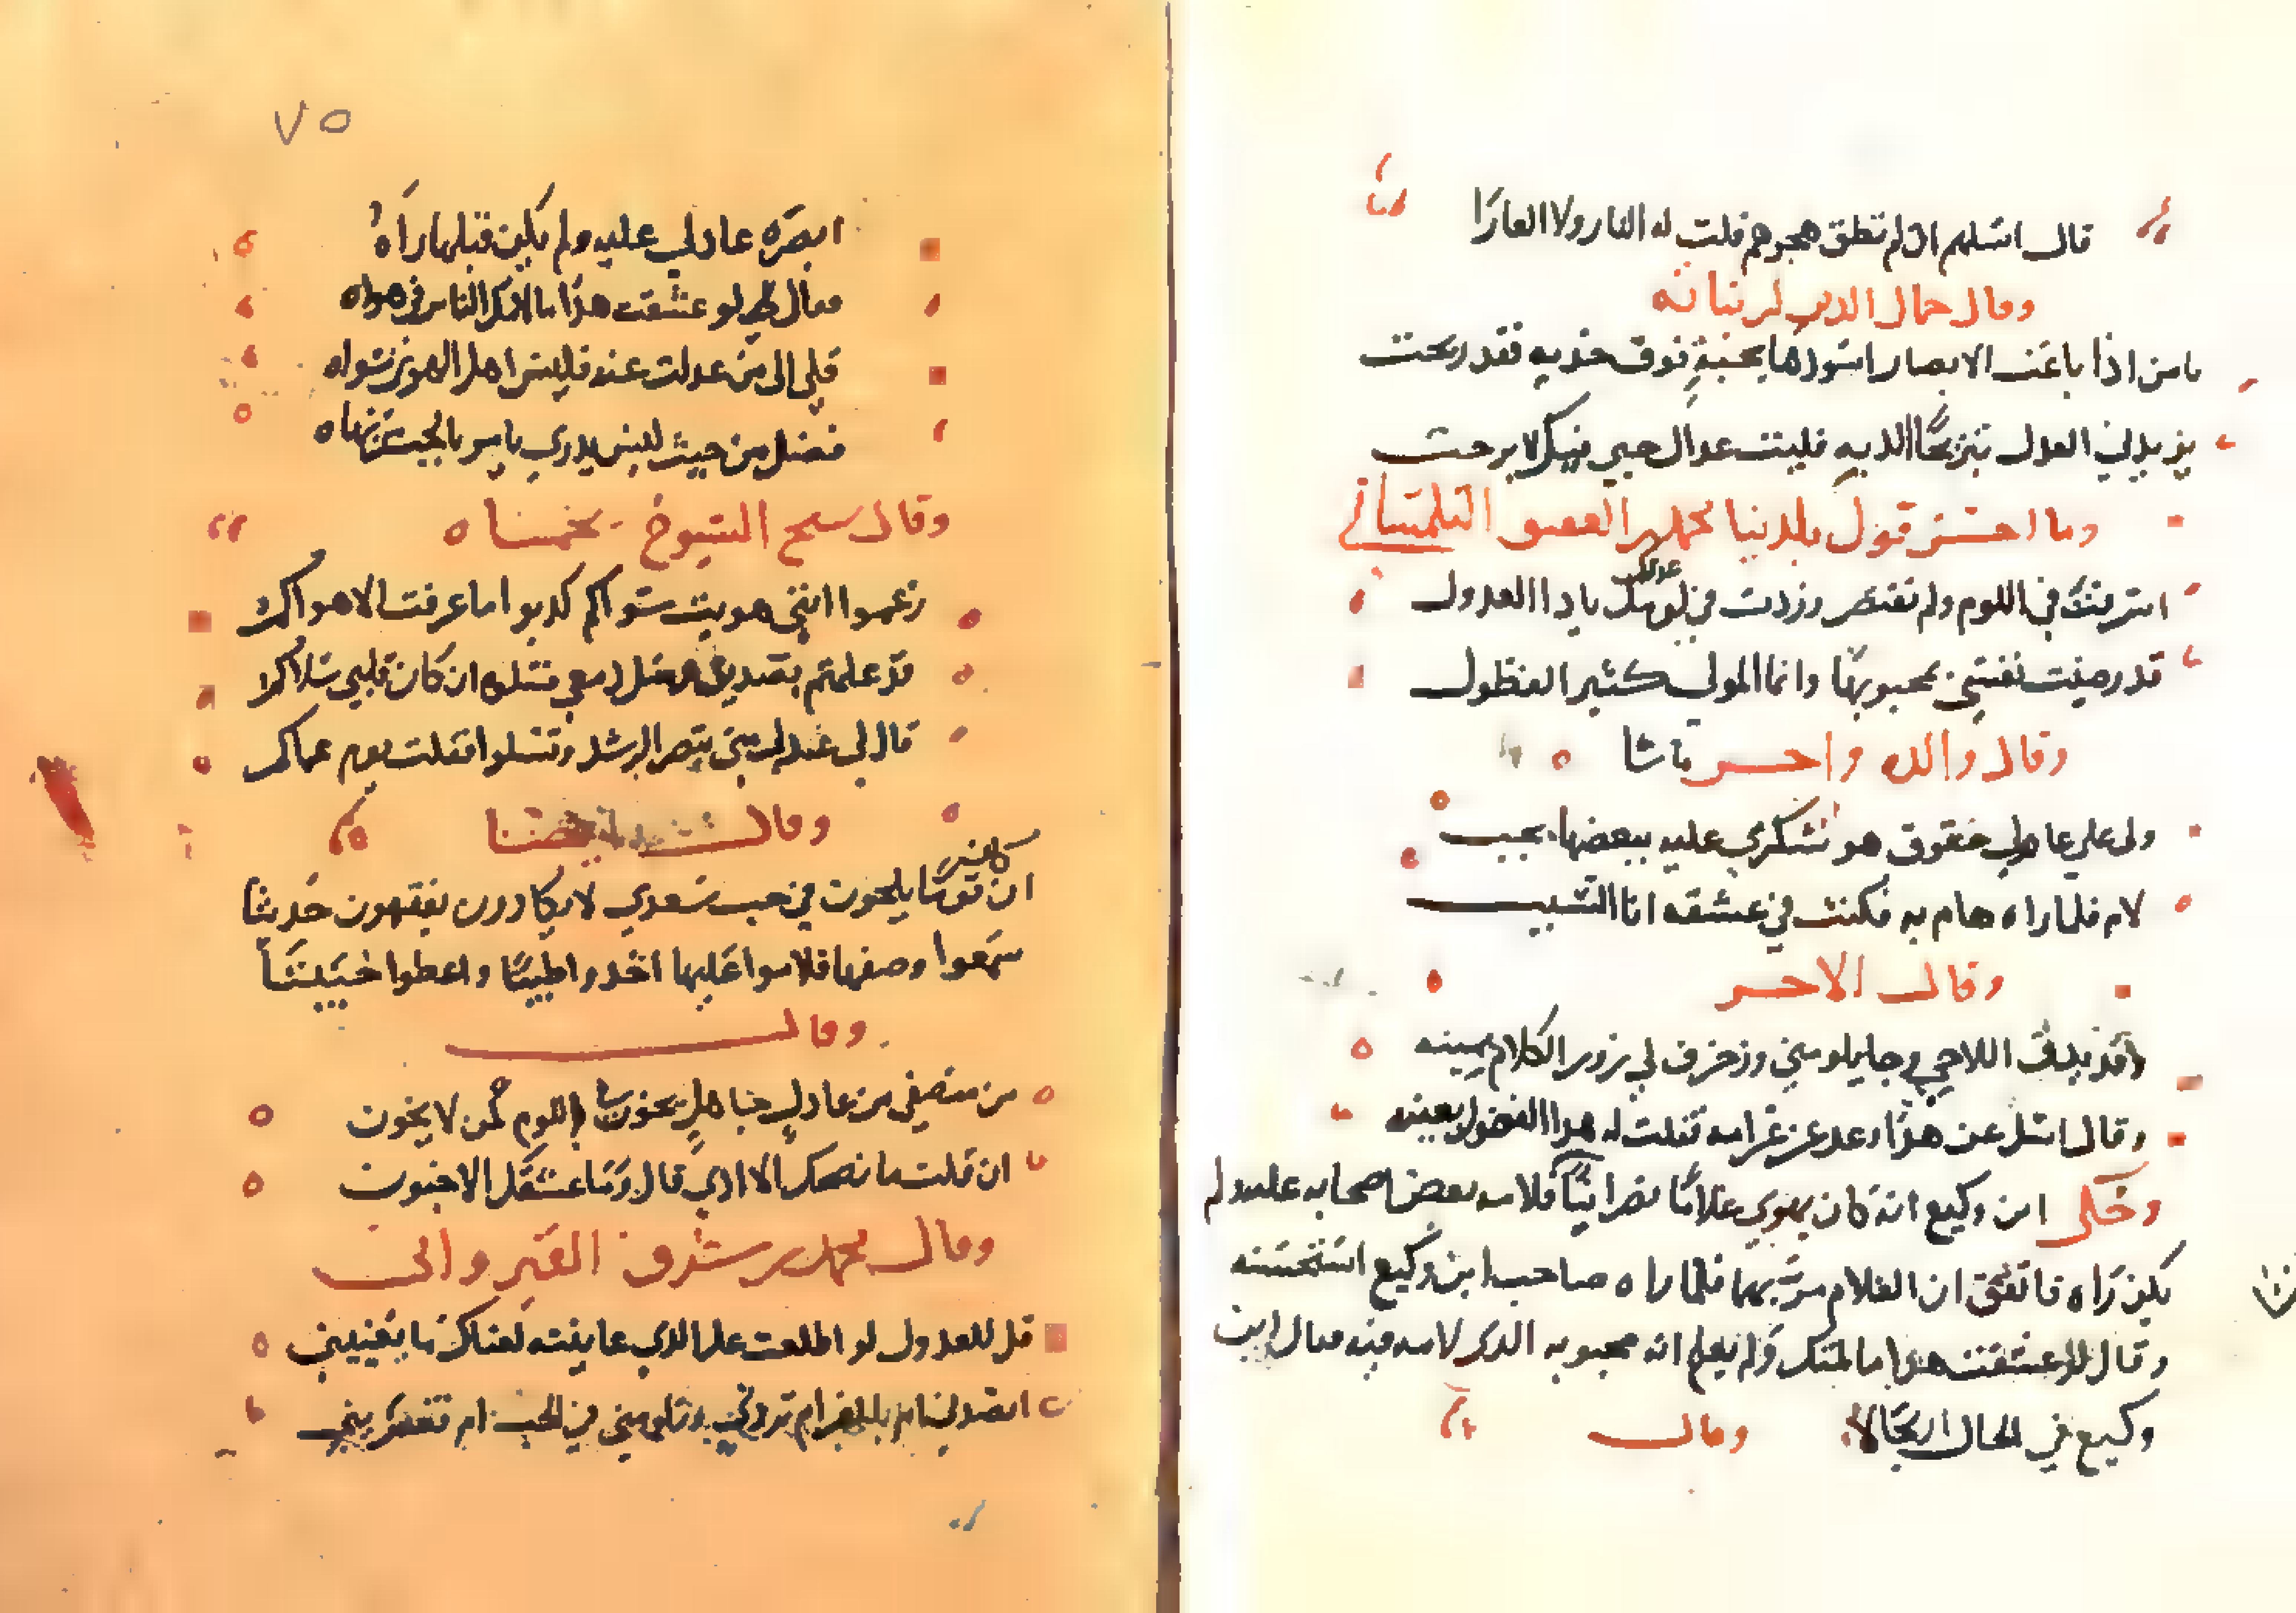 قال اسلهم ان لم تطق هجرهم قلت له النار ولا العارا
وقال جمال الدين بن نباته
يا من اذا باعت الابصار اسودها بحبة فوق خديه فقد ربحت
يزيدني العدل تبريحا الذ به فليت عدال حبي فيك لا برحت
وما احسن قول محمد بن العفيف التلمساني
اسرفت في اللوم ولم تقتصر وزدت في لومك يا دا العدول
قد رضيت نفسي بمحبوبها وانما المولى كثير الفضول
وقال والده واحسن ما شا
ولي علي عادلي حقوق هو شكري عليه ببعضها يجب
لام فلما راه هام به فكنت في عشقه انا السبب
وقال الاخر
اللاحي وجا يلومني وزخرف لي زور الكلام بمينه
وقال اسل عن هذا وعد عن غرامه فقلت له هدا الفضول بعينه
وحكى ابن وكيع انه كان يهوى غلاما نصرانيا فلامه بعض اصحابه عليه ولم
يكن راه فاتفق ان الغلام مر بهما فلما راه صاحب ابن وكيع استحسنه
وقال لو عشقت هدا ما لمتك ولم يعلم انه محبوبه الدي لامه فيه فقال ابن
وكيع في الحال ارتجالا وقال
٧٥
ابصره عادلي عليه ولم يكن قبلها رآه
فقال لي لو عشقت هذا ما انكر الناس في هواه
قلي الى من عدلت عنه فليس اهل الهوى سواه
فضل من حيث ليس يدري يامر بالحب من نهاه
وقال شيخ الشيوخ بحماه
زعموا انني هويت سواكم كدبوا ما عرفت الا هواكم
قد علمتم بصدق مرسل دمعي فسلوه ان كان قلبي سلاكم
قال لي عدلي متى تبصر الرشد وتسلوا فقلت يوم عماكم
وقال
ان قوما يلحون في حب سعدى لا يكادون يفقهون حديثا
سمعوا وصفها فلاموا عليها اخدوا طيبا واعطوا خبيثا
وقال
من منصفي من عادل جاهل يخون باللوم لمن لا يخون
ان قلت ما نصحك الا ادي قال وما عشقك الا جنون
وقال محمد بن شرف القيرواني
قل للعدول لو اطلعت على الدي عاينته لعناك ما يعنيني
اتصدني ام بالغرام تردني وتلومني في الحب ام تغريني